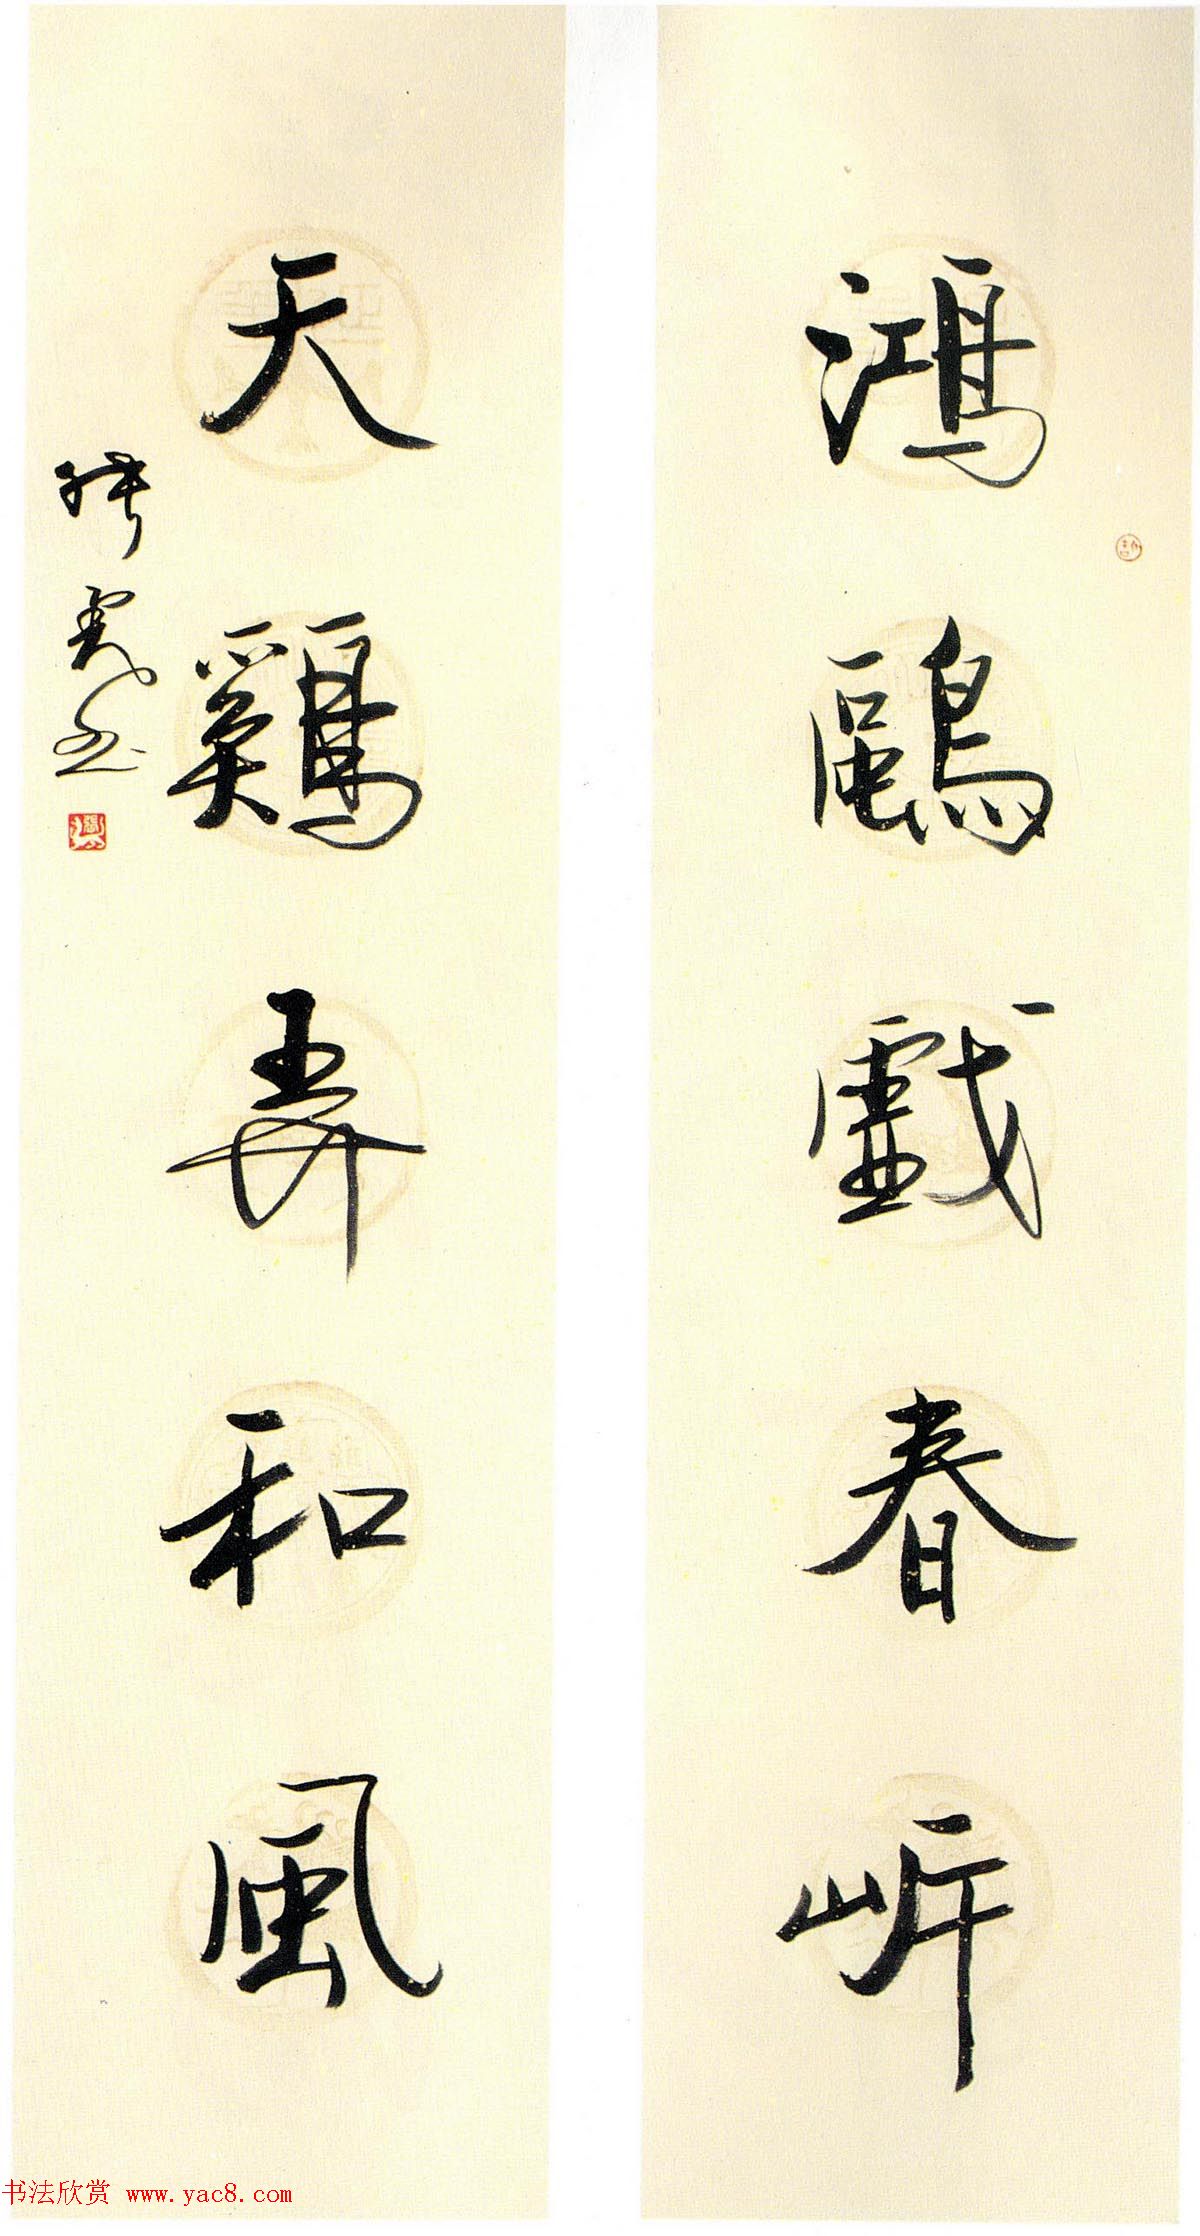 鴻鷗戲春岸
天鷄弄和風
书法欣赏 www.yac8.com